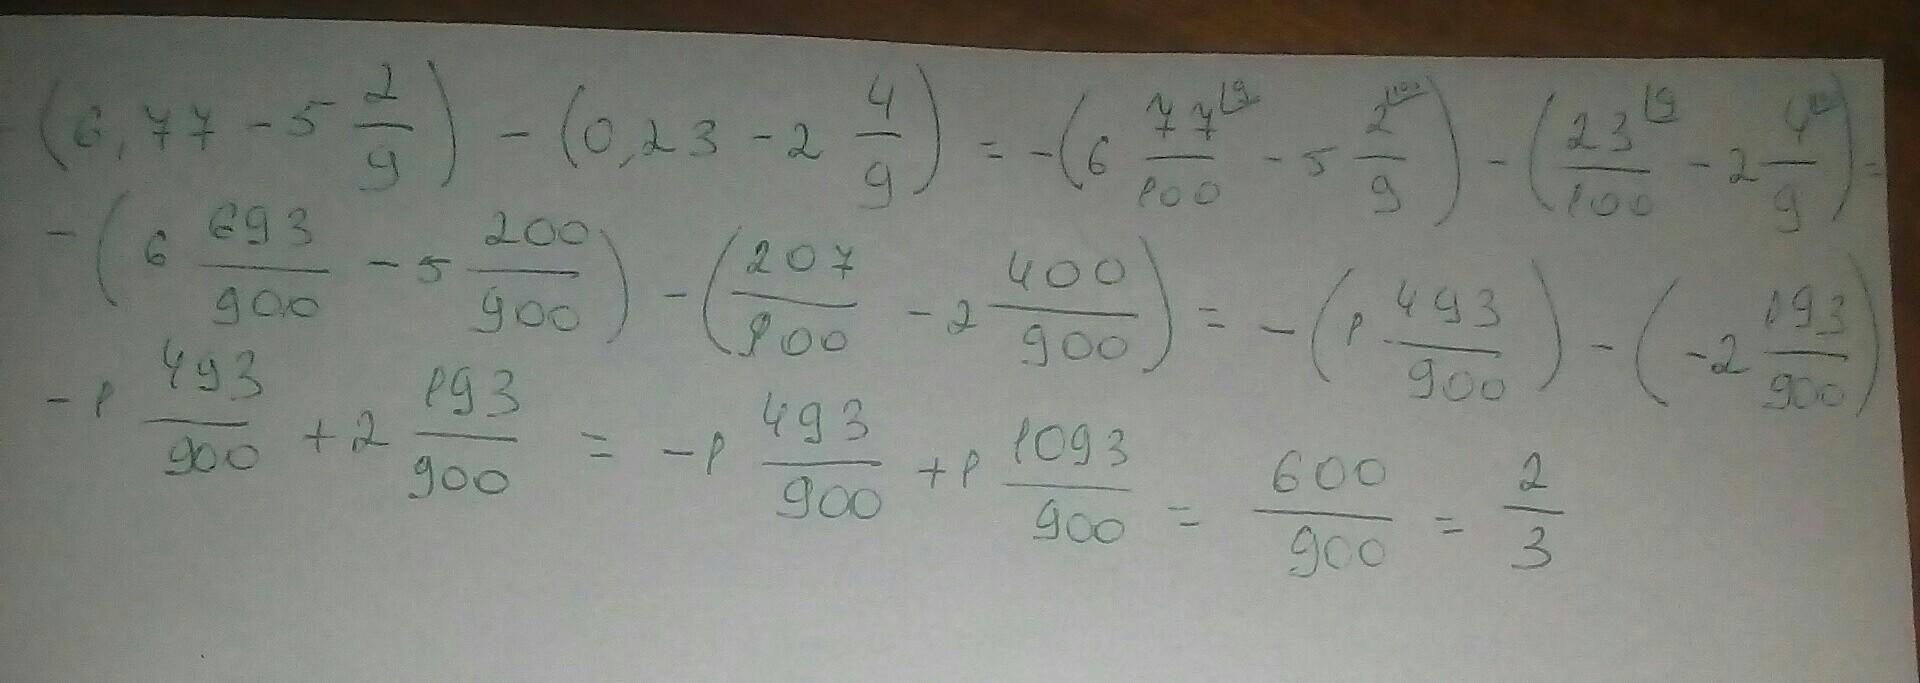 -(6,77 - 5 2/9) - (0,23 - 2 4/9) = -(6 77⌊9/100 - 5 2⌊100/9) - (23⌊9/100 - 2 4/9) =
-(6 693/900 - 5 200/900) - (207/900 - 2 400/900) = -(1 493/900) - (-2 193/900)
-1 493/900 + 2 193/900 = -1 493/900 + 1 1093/900 = 600/900 = 2/3